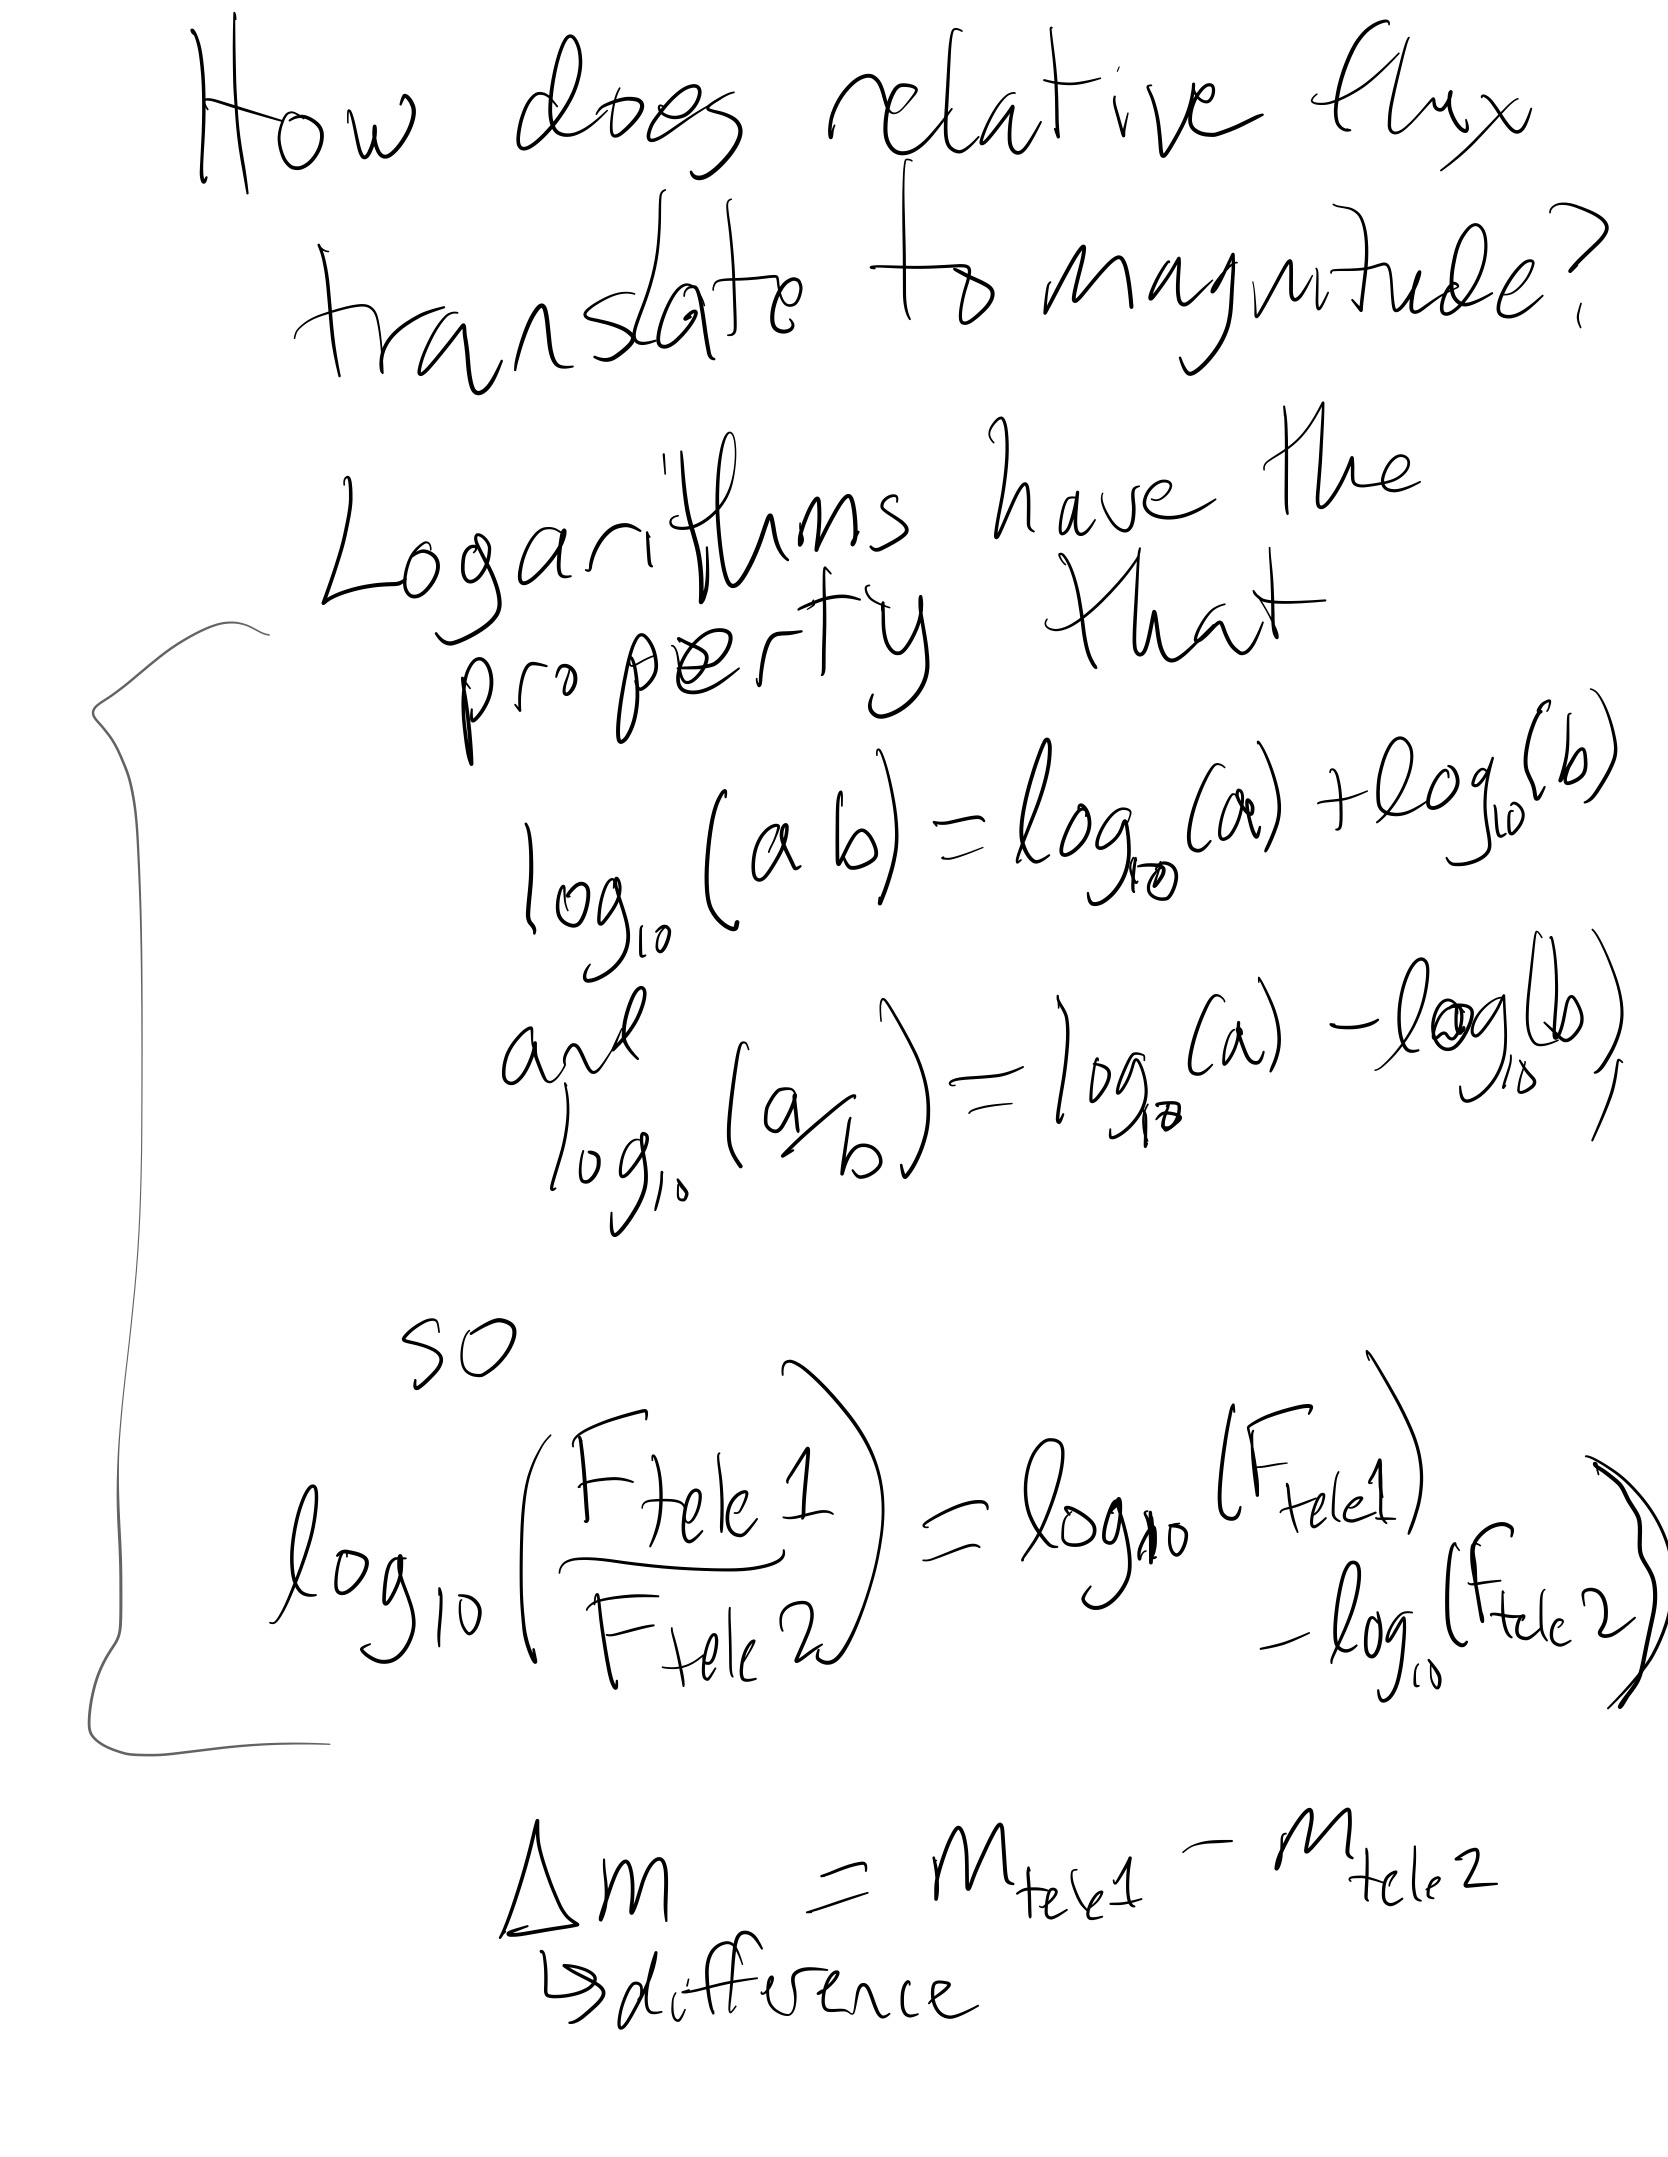 How does relative flux
translate to magnitude?
Logarithms have the
property that
log₁₀ (ab) = log₁₀ (a) + log₁₀ (b)
and
log₁₀ (a/b) = log₁₀ (a) - log₁₀ (b),
so
log₁₀ (F_tele1 / F_tele2) = log₁₀ (F_tele1)
- log₁₀ (F_tele2)
Δm = m_tele1 - m_tele2
↳ difference